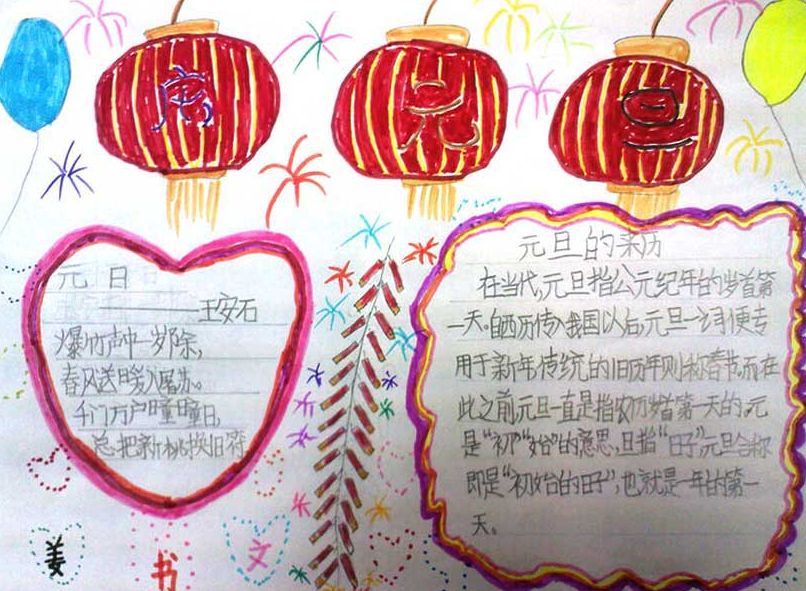 庆元旦
元日
——王安石
爆竹声中一岁除,
春风送暖入屠苏。
千门万户曈曈日,
总把新桃换旧符
元旦的来历
在当代,元旦指公元纪年的岁首第
一天。自西历传入我国以后,元旦一词便专
用于新年,传统的旧历年则称春节,而在
此之前,元旦一直是指农历岁首第一天的。元
是“初”“始”的意思,旦指“日子”,元旦合称
即是“初始的日子”,也就是一年的第一
天。
姜书文